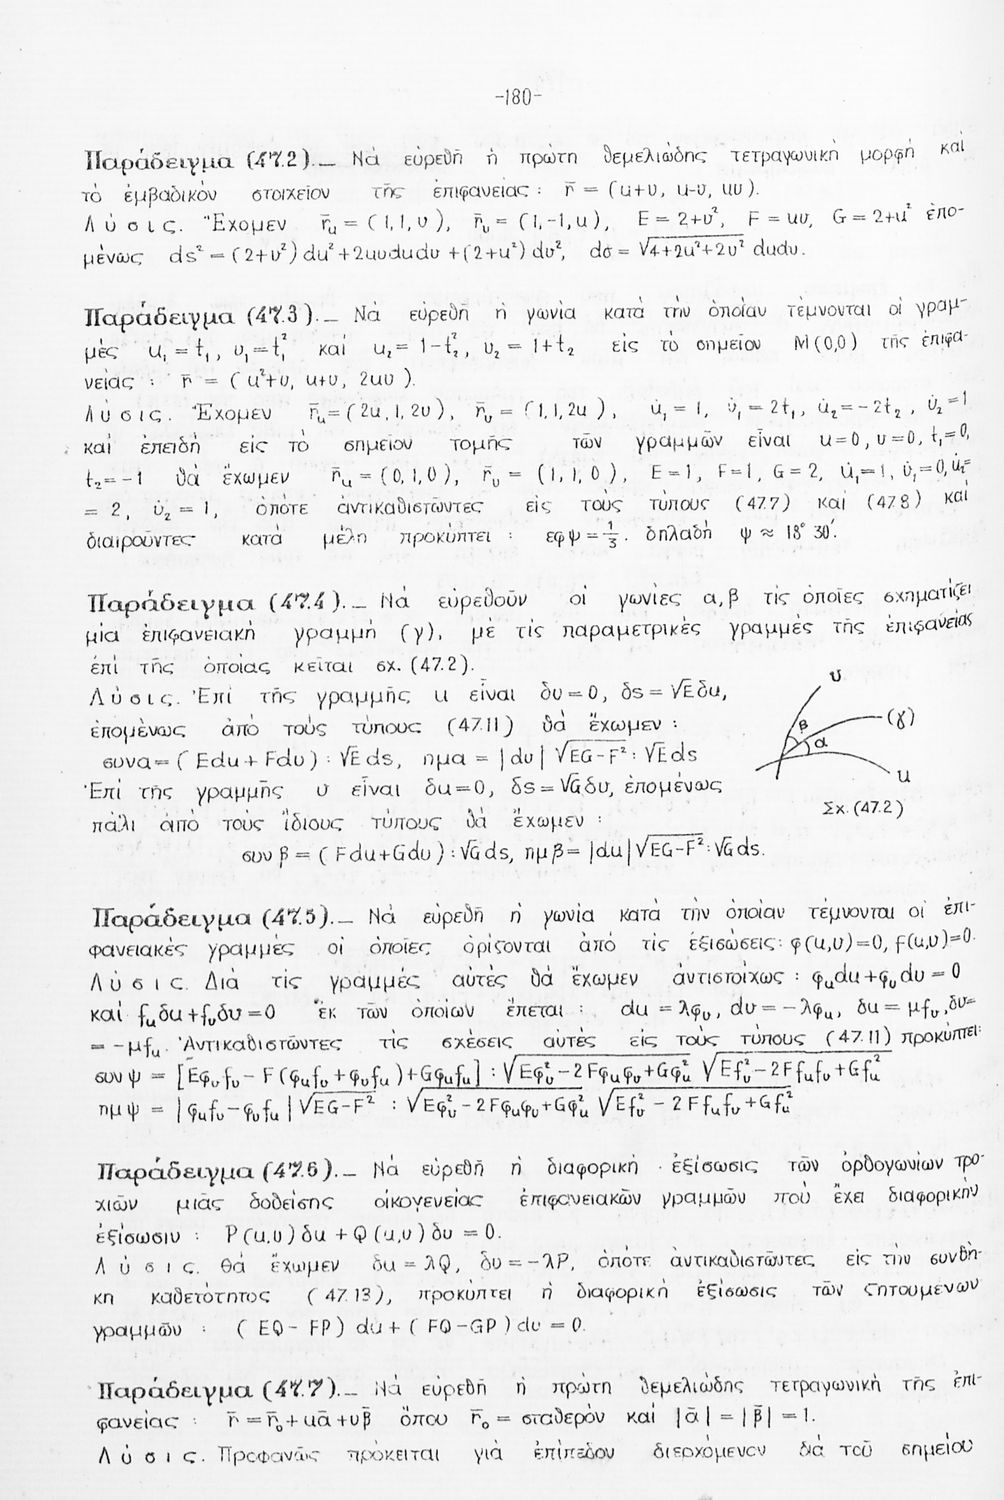 -180-
Παράδειγμα (47.2)._ Νά εὑρεθῆ ἡ πρώτη θεμελιώδης τετραγωνική μορφή καί
τό ἐμβαδικόν στοιχεῖον τῆς ἐπιφανείας: r̄ = (u+υ, u-υ, uυ).
Λύσις. Ἔχομεν r̄ᵤ = (1,1,υ), r̄ᵥ = (1,-1,u), E = 2+υ², F = uυ, G = 2+u² ἑπο-
μένως ds² = (2+υ²)du²+2uυdudυ+(2+u²)dυ², dσ = √4+2u²+2υ² dudυ.
Παράδειγμα (47.3)._ Νά εὑρεθῆ ἡ γωνία κατά τήν ὁποίαν τέμνονται οἱ γραμ-
μές u₁ = t₁, υ₁ = t₁² καί u₂ = 1-t₂², υ₂ = 1+t₂ εἰς τό σημεῖον M(0,0) τῆς ἐπιφα-
νείας : r̄ = (u²+υ, u+υ, 2uυ).
Λύσις. Ἔχομεν r̄ᵤ = (2u,1,2υ), r̄ᵥ = (1,1,2u), u̇₁ = 1, υ̇₁ = 2t₁, u̇₂ = -2t₂, υ̇₂ = 1
καί ἐπειδή εἰς τό σημεῖον τομῆς τῶν γραμμῶν εἶναι u=0, υ=0, t₁=0,
t₂=-1 θά ἔχωμεν r̄ᵤ = (0,1,0), r̄ᵥ = (1,1,0), E=1, F=1, G=2, u̇₁=1, υ̇₁=0, u̇₂=
= 2, υ̇₂ = 1, ὁπότε ἀντικαθιστῶντες εἰς τούς τύπους (47.7) καί (47.8) καί
διαιροῦντες κατά μέλη προκύπτει : εφψ = 1/3. δηλαδή ψ ≈ 18° 30'.
Παράδειγμα (47.4)._ Νά εὑρεθοῦν οἱ γωνίες α,β τίς ὁποῖες σχηματίζει
μία ἐπιφανειακή γραμμή (γ), μέ τίς παραμετρικές γραμμές τῆς ἐπιφανείας
ἐπί τῆς ὁποίας κεῖται σχ. (47.2).
Λύσις. Ἐπί τῆς γραμμῆς u εἶναι δυ = 0, δs = √Eδu,
ἑπομένως ἀπό τούς τύπους (47.11) θά ἔχωμεν :
συνα = (Edu + Fdυ) : √E ds, ημα = |dυ| √EG-F² : √E ds
Ἐπί τῆς γραμμῆς υ εἶναι δu=0, δs = √Gδυ, ἑπομένως
πάλι ἀπό τούς ἴδιους τύπους θά ἔχωμεν :
συν β = (Fdu+Gdυ) : √G ds, ημβ = |du| √EG-F² : √G ds.
υ
(γ)
β
α
u
Σχ. (47.2)
Παράδειγμα (47.5)._ Νά εὑρεθῆ ἡ γωνία κατά τήν ὁποίαν τέμνονται οἱ ἐπι-
φανειακές γραμμές οἱ ὁποῖες ὁρίζονται ἀπό τίς ἐξισώσεις: φ(u,υ)=0, f(u,υ)=0.
Λύσις. Διά τίς γραμμές αὐτές θά ἔχωμεν ἀντιστοίχως : φᵤdu+φᵥdυ = 0
καί fᵤδu+fᵥδυ = 0 ἐκ τῶν ὁποίων ἕπεται : du = λφᵥ, dυ = -λφᵤ, δu = μfᵥ, δυ=
= -μfᵤ. Ἀντικαθιστῶντες τίς σχέσεις αὐτές εἰς τούς τύπους (47.11) προκύπτει:
συνψ = [Eφᵥfᵥ - F(φᵤfᵥ+φᵥfᵤ)+Gφᵤfᵤ] : √Eφᵥ²-2Fφᵤφᵥ+Gφᵤ² √Efᵥ²-2Ffᵤfᵥ+Gfᵤ²
ημψ = |φᵤfᵥ-φᵥfᵤ| √EG-F² : √Eφᵥ²-2Fφᵤφᵥ+Gφᵤ² √Efᵥ²-2Ffᵤfᵥ+Gfᵤ²
Παράδειγμα (47.6)._ Νά εὑρεθῆ ἡ διαφορική ἐξίσωσις τῶν ὀρθογωνίων τρο-
χιῶν μιᾶς δοθείσης οἰκογενείας ἐπιφανειακῶν γραμμῶν πού ἔχει διαφορικήν
ἐξίσωσιν : P(u,υ)δu + Q(u,υ)δυ = 0.
Λύσις. Θά ἔχωμεν δu = λQ, δυ = -λP, ὁπότε ἀντικαθιστῶντες εἰς τήν συνθή-
κη καθετότητος (47.13), προκύπτει ἡ διαφορική ἐξίσωσις τῶν ζητουμένων
γραμμῶν : (EQ - FP) du + (FQ-GP) dυ = 0.
Παράδειγμα (47.7)._ Νά εὑρεθῆ ἡ πρώτη θεμελιώδης τετραγωνική τῆς ἐπι-
φανείας : r̄ = r̄₀+uᾱ+υβ̄ ὅπου r̄₀ = σταθερόν καί |ᾱ| = |β̄| = 1.
Λύσις. Προφανῶς πρόκειται γιά ἐπίπεδον διερχόμενον διά τοῦ σημείου